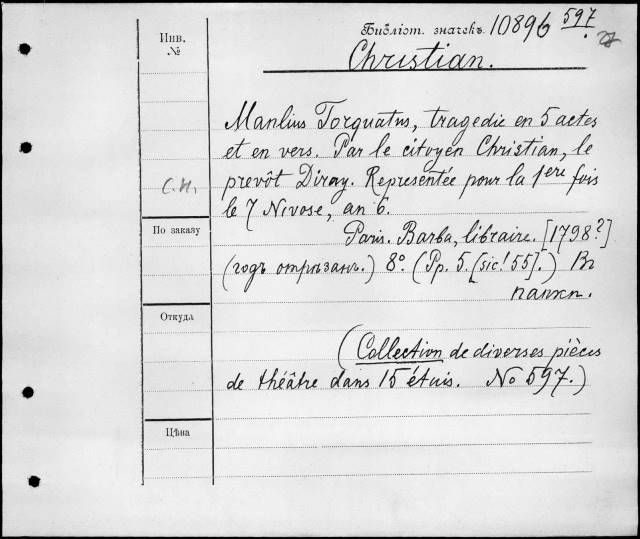 Инв.
№
Библіот. значекъ 10896 597.
Christian.
Manlius Torquatus, tragedie en 5 actes
et en vers. Par le citoyen Christian, le
prevôt Diray. Representée pour la 1ere fois
С.И.
le 7 Nivose, an 6.
По заказу
Paris. Barba, libraire. [1798?]
(годъ отрѣзанъ.) 8º. (Pp. 5. [sic! 55].) Въ
папкѣ.
Откуда
(Collection de diverses pièces
de théâtre dans 15 étuis. No 597.)
Цѣна